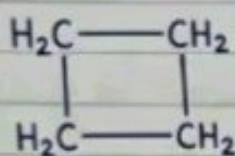 H₂C CH₂
H₂C CH₂